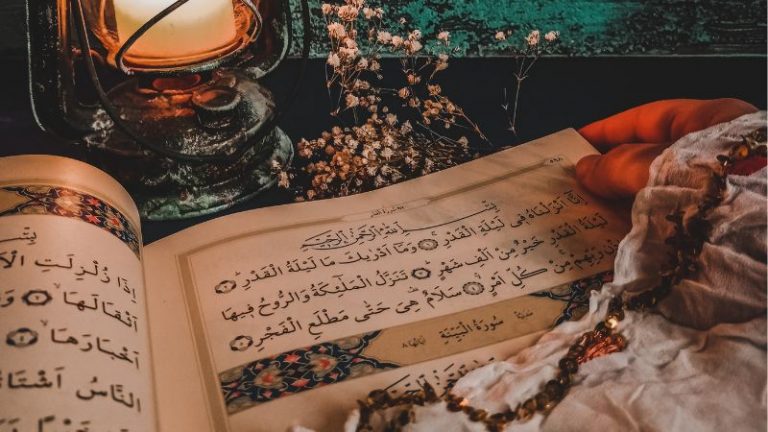 بِسْمِ اللّٰهِ الرَّحْمٰنِ الرَّحِيمِ
اِنَّٓا اَنْزَلْنَاهُ فِى لَيْلَةِ الْقَدْرِ ۝ وَمَٓا اَدْرٰيكَ مَا لَيْلَةُ الْقَدْرِ ۝
لَيْلَةُ الْقَدْرِ خَيْرٌ مِنْ اَلْفِ شَهْرٍ ۝ تَنَزَّلُ الْمَلٰٓئِكَةُ وَالرُّوحُ فِيهَا
رَبِّهِمْ مِنْ كُلِّ اَمْرٍ ۝ سَلَامٌ هِىَ حَتّٰى مَطْلَعِ الْفَجْرِ ۝
سُورَةُ الْبَيِّنَةِ
بِسْمِ
اِذَا زُلْزِلَتِ الْاَ
اَثْقَالَهَا ۝ وَ
اَخْبَارَهَا ۝
النَّاسُ اَشْتَا